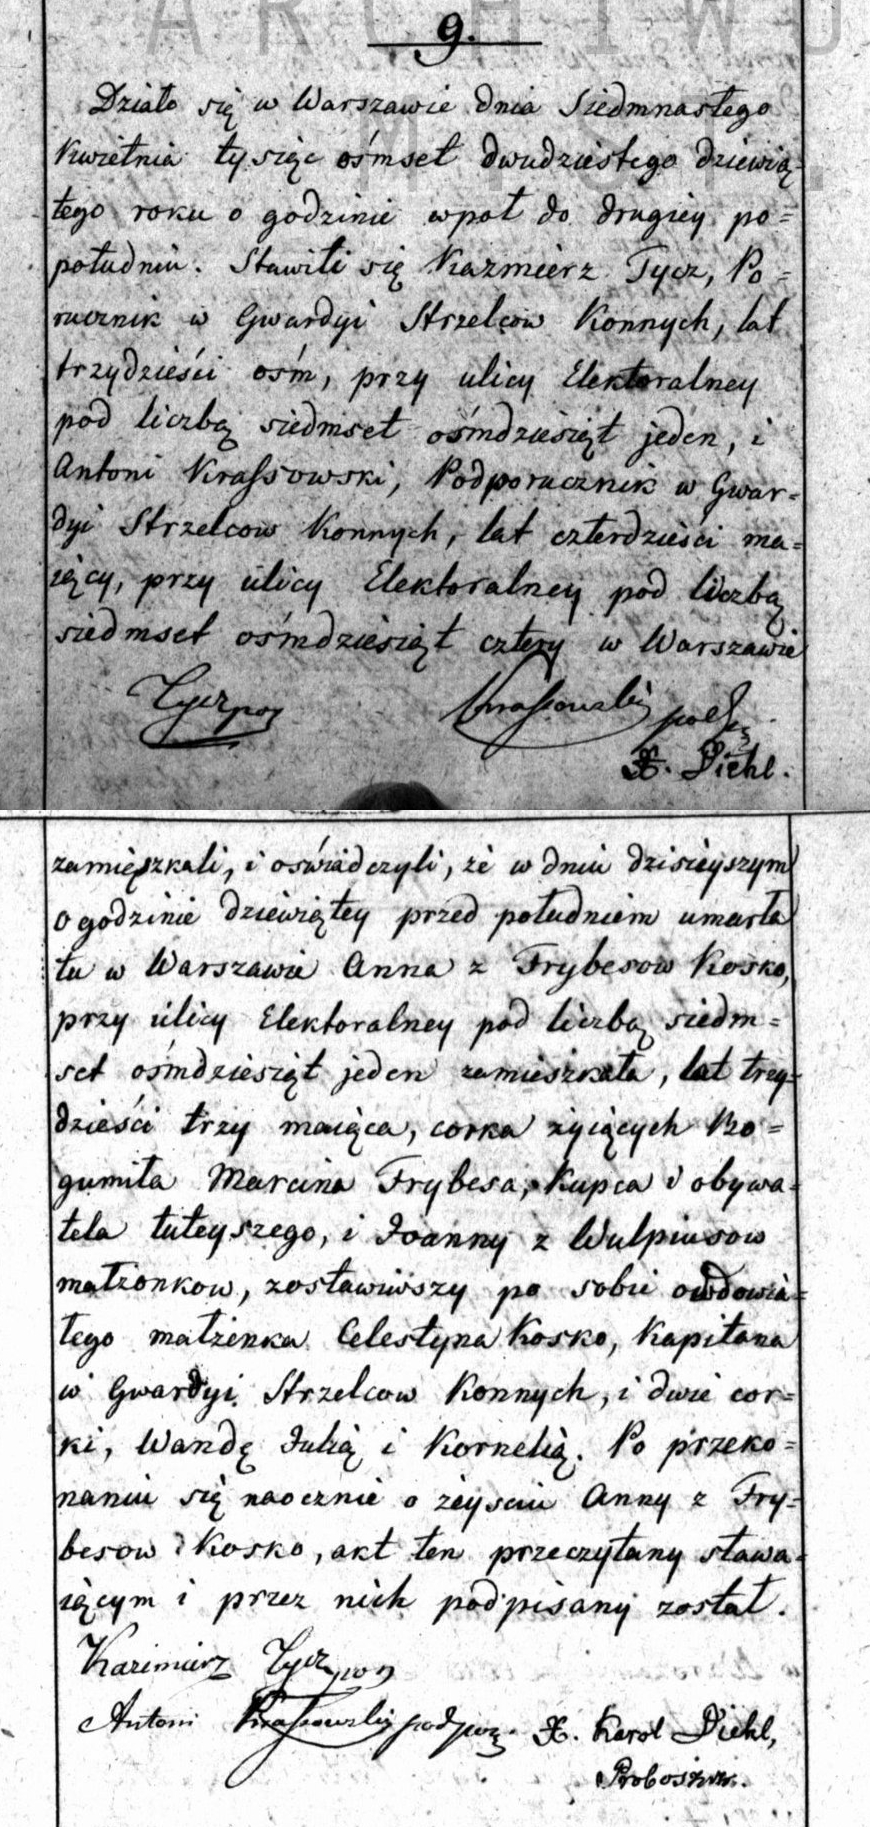 9.
Działo się w Warszawie dnia Siedmnastego
Kwietnia tysiąc ośmset dwudziestego dziewią=
tego roku o godzinie wpoł do drugiey po=
południu. Stawili się Kazmierz Tycz, Po=
rucznik w Gwardyi Strzelcow Konnych, lat
trzydzieści ośm, przy ulicy Elektoralney
pod liczbą siedmset ośmdziesiąt jeden, i
Antoni Krassowski, Podporucznik w Gwar=
dyi Strzelcow Konnych, lat czterdzieści ma=
iący, przy ulicy Elektoralney pod liczbą
siedmset ośmdziesiąt cztery w Warszawie
Tycz por Krassowski
X. Diehl.
zamięszkali, i oświadczyli, że w dniu dzisieyszym
o godzinie dziewiątey przed południem umarła
tu w Warszawie Anna z Frybesow Kosko,
przy ulicy Elektoralney pod liczbą siedm=
set ośmdziesiąt jeden zamieszkała, lat trzy=
dzieści trzy maiąca, corka żyiących Bo=
gumiła Marcina Frybesa, Kupca i obywa=
tela tuteyszego, i Joanny z Wulpiusow
małżonkow, zostawiwszy po sobie owdowia=
łego małżenka Celestyna Kosko, Kapitana
w Gwardyi Strzelcow Konnych, i dwie cor=
ki, Wandę Julią i Kornelią. Po przeko=
naniu się naocznie o zeysciu Anny z Fry=
besow Kosko, akt ten przeczytany stawa=
iącym i przez nich podpisany został.
Kazimierz Tycz por
Antoni Krassowski podpor. X. Karol Diehl,
Proboszcz.